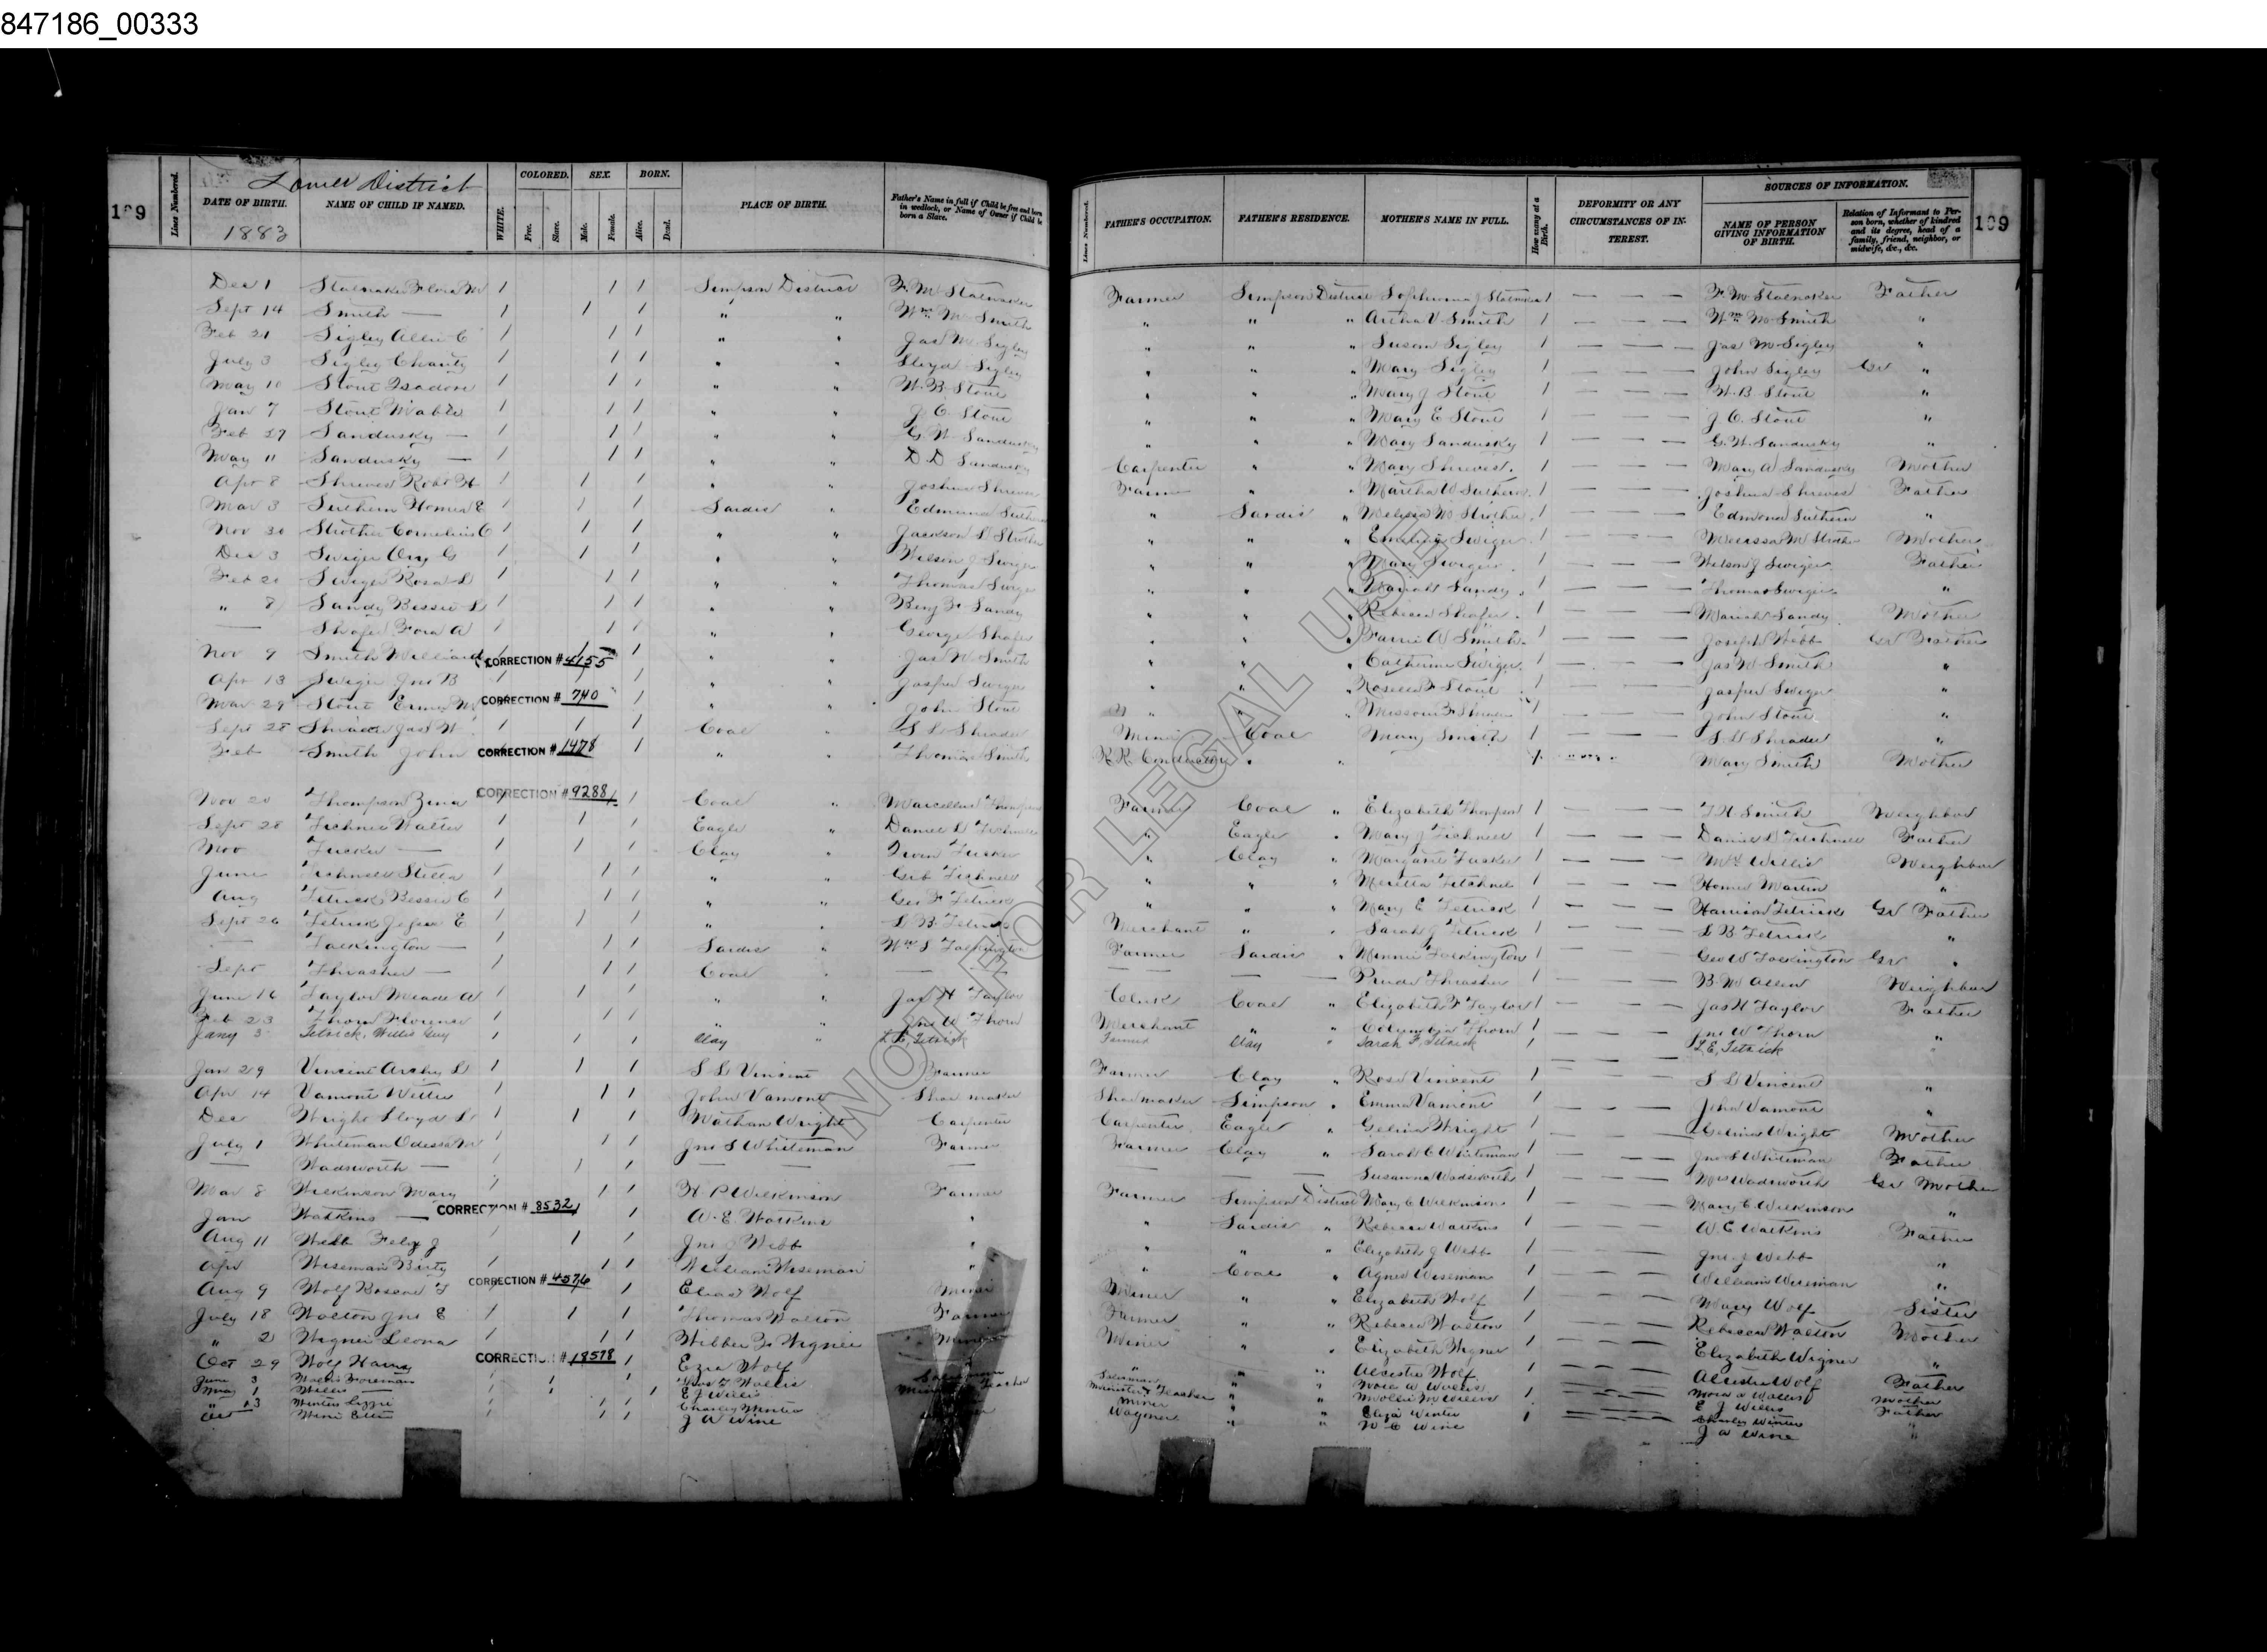 847186_00333
Lower District
189
Lines Numbered.
DATE OF BIRTH.
1883
NAME OF CHILD IF NAMED.
WHITE.
COLORED.
Free.
Slave.
SEX.
Male.
Female.
BORN.
Alive.
Dead.
PLACE OF BIRTH.
Father's Name in full if Child be free and born in wedlock, or Name of Owner if Child be born a Slave.
Lines Numbered.
FATHER'S OCCUPATION.
FATHER'S RESIDENCE.
MOTHER'S NAME IN FULL.
How many at a Birth.
DEFORMITY OR ANY CIRCUMSTANCES OF INTEREST.
SOURCES OF INFORMATION.
NAME OF PERSON GIVING INFORMATION OF BIRTH.
Relation of Informant to Person born, whether of kindred and its degree, head of a family, friend, neighbor, or midwife, &c., &c.
189
Dec 1 Stalnaker Flora M 1 1 1 Simpson District F. M. Stalnaker Farmer Simpson District 1 — — — F. M. Stalnaker Father
Sept 14 Smith — 1 1 1 " " Wm M Smith " " " Artha V Smith 1 — — — Wm M Smith "
Feb 21 Sigley Allie C 1 1 1 " " Jas M Sigley " " " Susan Sigley 1 — — — Jas M Sigley "
July 3 Sigley Charity 1 1 1 " " Lloyd Sigley " " " Mary Sigley 1 — — — John Sigley Gr "
May 10 Stout Isadore 1 1 1 " " W. B. Stout " " " Mary J Stout 1 — — — W. B Stout "
Jan 7 Stout Mable 1 1 1 " " J. C. Stout " " " Mary E Stout 1 — — — J C. Stout "
Feb 27 Sandusky — 1 1 1 " " G W Sandusky " " " Mary Sandusky 1 — — — G. W. Sandusky "
May 11 Sandusky — 1 1 1 " " D. D Sandusky Carpenter " " Mary Shreves 1 — — — Mary A Sandusky Mother
Apr 8 Shreves Robt H 1 1 1 " " Joshua Shreves Farmer " " Martha W Suthern 1 — — — Joshua Shreves Father
Mar 3 Suthern Homer E 1 1 1 Sardis " Edmund Suthern " Sardis " Melissa M Strother 1 — — — Edmond Suthern "
Nov 30 Strother Cornelius C 1 1 1 " " Jackson D Strother " " " Emeline Swiger 1 — — — Melissa M Strother Mother
Dec 3 Swiger Ory G 1 1 1 " " Wilson J Swiger " " " Mary Swiger 1 — — — Wilson J Swiger Father
Feb 21 Swiger Rosa L 1 1 1 " " Thomas Swiger " " " Mariah Sandy 1 — — — Thomas Swiger "
" 8 Sandy Bessie L 1 1 1 " " Benj F Sandy " " " Rebecca Shafer 1 — — — Mariah Sandy Mother
— Shafer Fora A 1 1 1 " " George Shafer " " " Fannie A Smith 1 — — — Joseph Webb Gr Father
Nov 9 Smith Williard CORRECTION # 4155 1 " " Jas W Smith " " " Catherine Swiger 1 — — — Jas W Smith "
Apr 13 Swiger Jno B 1 1 1 " " Jasper Swiger " " " Stout 1 — — — Jasper Swiger "
Mar 29 Stout CORRECTION # 740 1 " " John Stout " " " 1 — — — John Stout "
Sept 28 Shrader Jas W 1 1 1 Coal " S L Shrader Miner Coal Mary Smith 1 — — — S. L Shrader "
Feb Smith John CORRECTION # 1478 1 " " Thomas Smith R.R. Conductor " " 1 Mary Smith Mother
Nov 20 Thompson Zena CORRECTION # 9288 1 Coal " Marcellus Thompson Farmer Coal " Elizabeth Thompson 1 — — — Smith Neighbor
Sept 28 Tichnell Walter 1 1 1 Eagle " Daniel D Tichnell " Eagle " Mary J Tichnell 1 — — — Daniel D Tetchnell Father
Nov Tucker — 1 1 1 Clay " Tucker " Clay " Margaret Tucker 1 — — — Willis Neighbor
June Tichnell Stella 1 1 1 " " Tichnell " " " Tetchnel 1 — — — Homer Martin "
Aug Tetrick Bessie C 1 1 1 " " Geo F Tetrick " " " Mary E Tetrick 1 — — — Harrison Tetrick Gr Father
Sept 26 Tetrick E 1 1 1 " " L B Tetrick Merchant " " Sarah J Tetrick 1 — — — L B Tetrick "
— Talkington — 1 1 1 Sardis " Wm S Talkington Farmer Sardis " Minnie Talkington 1 — — — Geo W Talkington Gr "
Sept Thrasher — 1 1 1 Coal " — — — — Thrasher 1 — — — B. M Allen Neighbor
June 16 Taylor Meade A 1 1 1 " " Jas H Taylor Clerk Coal " Elizabeth F Taylor 1 — — — Jas H Taylor Father
Feb 23 Thorn Florence 1 1 1 " " Jno W Thorn Merchant " " Columbia Thorn 1 — — — Jno W Thorn "
Jany 3 Tetrick, Willis Guy 1 1 1 Clay " L. E. Tetrick Farmer Clay " Sarah F. Tetrick 1 — — — L. E. Tetrick "
Jan 29 Vincent Archy L 1 1 1 S L Vincent Farmer Farmer Clay " Rosa Vincent 1 — — — S L Vincent "
Apr 14 Vamont Willie 1 1 1 John Vamont Shoemaker Shoemaker Simpson " Emma Vamont 1 — — — John Vamont "
Dec Wright Lloyd L 1 1 1 Nathan Wright Carpenter Carpenter Eagle " Gelina Wright 1 — — — Gelina Wright Mother
July 1 Whiteman Odessa M 1 1 1 Jno S Whiteman Farmer Farmer Clay " Sarah C Whiteman 1 — — — Jno S Whiteman Father
— Wadsworth — 1 1 1 — — — — — Susanna Wadsworth 1 — — — Mrs Wadsworth Gr Mother
Mar 8 Wilkinson Mary 1 1 1 H P Wilkinson Farmer Farmer Simpson District Mary C Wilkinson 1 — — — Mary C. Wilkinson "
Jan Watkins — CORRECTION # 8532 1 A. E. Watkins " " Sardis " Rebecca Watkins 1 — — — A. E Watkins Father
Aug 11 Webb Felix J 1 1 1 Jno J Webb " " " " Elizabeth J Webb 1 — — — Jno J Webb "
Apr Wiseman Birty 1 1 1 William Wiseman " " Coal " Agnes Wiseman 1 — — — William Wiseman "
Aug 9 Wolf CORRECTION # 4576 1 Elias Wolf Miner Miner " " Elizabeth Wolf 1 — — — Mary Wolf Sister
July 18 Walton Jno E 1 1 1 Thomas Walton Farmer Farmer " " Rebecca Walton 1 — — — Rebecca Walton Mother
" 2 Wigner Leona 1 1 1 Wigner Miner Miner " " Elizabeth Wigner — — — Elizabeth Wigner "
Oct 29 Wolf Harry CORRECTION # 18578 1 Ezra Wolf " " " Alcestia Wolf — — — Alcestia Wolf Father
June 3 Wallis Foreman 1 1 1 Wallis Salesman Salesman " " Nora A Wallis — — — Nora A Wallis Mother
May 1 Willis — 1 1 1 E J Willis Teacher Minister & Teacher " " Mollie M Willis 1 — — — E J Willis Father
" 23 Winter Lizzie 1 1 1 Charley Winter Miner " " Eliza Winter — — — Charley Winter "
Oct Wine 1 1 1 J A Wine Wagoner " " Wine 1 — — — J A Wine "
NOT FOR LEGAL USE